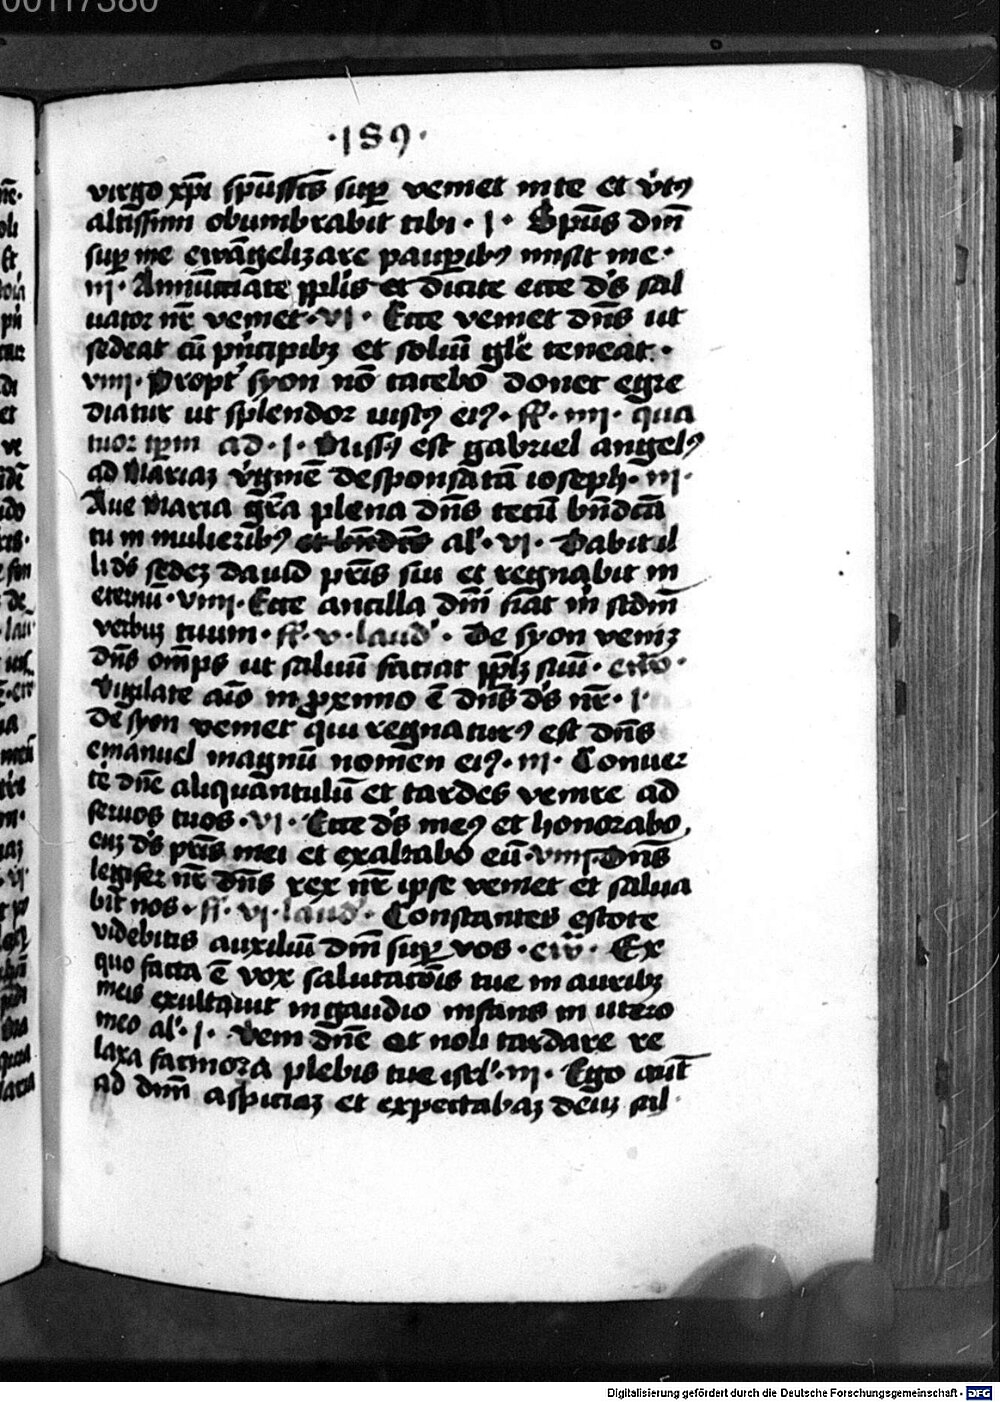 00117380
·189·
virgo xp̄i sp̄ussc̄s sup̲ veniet in te et v̓tꝰ
altissimi obumbrabit tibi · ı · Sp̄us dn̄i
sup̲ me ewāgelizare paup̲ibꝰ misit me ·
iij · Annūciate pp̲lis et dicite ecce d̄s sal
uator nr̄ veniet · vı · Ecce veniet dn̄s ut
sedeat cū pn̄cipibꝫ et soliū gl̄e teneat ·
viiij · Propt̓ syon nō tacebo donec egre
diatur ut splendor iustꝰ eiꝰ · ff · iiij · qua
tuor tp̲m ad · ı · Missꝰ est gabriel angelꝰ
ad Mariaꝫ v̓gīnē desponsatā ioseph · iij ·
Aue Maria gr̄a plena dn̄s tecū bn̄dc̄a
tu in mulieribꝰ et bn̄dc̄s al̓ · vı · Dabit il
li d̄s sedeꝫ dauid pr̄is sui et regnabit in
eternū · viiij · Ecce ancilla dn̄i fiat m̓ scdm̄
verbuꝫ tuum · ff · v · laud̓ · De syon veniꝫ
dn̄s om̄ps ut saluū faciat pp̲lꝫ suū · ew̄o ·
Vigilate aīo in ꝓximo ē dn̄s d̄s nr̄ · ı ·
De syon veniet qui regnaturꝰ est dn̄s
emanuel magnū nomen eiꝰ · iij · Conuer
te dn̄e aliquantulū et tardes venire ad
seruos tuos · vı · Ecce d̄s meꝰ et honorabo
euꝫ d̄s pr̄is mei et exaltabo eū · viiij · Dn̄s
legifer nr̄ dn̄s rex nr̄ ipse veniet et salua
bit nos · ff · vı · laud̓ · Constantes estote
videbitis auxiliū dn̄i sup̲ vos · ew̄ · Ex
quo facta ē vox salutac̄ois tue in auribꝫ
meis exultauit in gaudio infans in utero
meo al̓ · ı · Veni dn̄e et noli tardare re
laxa facinora plebis tue isrl̓ · iij · Ego aut̄
ad dn̄m aspiciaꝫ et expectabaꝫ deuꝫ sal
Digitalisierung gefördert durch die Deutsche Forschungsgemeinschaft · DFG